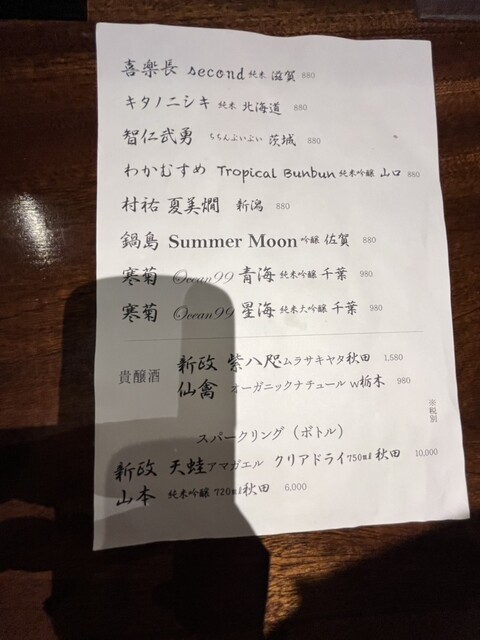 喜楽長 second 純米 滋賀 880
キタノニシキ 純米 北海道 880
智仁武勇 ちちんぷいぷい 茨城 880
わかむすめ Tropical Bunbun 純米吟醸 山口 880
村祐 夏美燗 新潟 880
鍋島 Summer Moon 吟醸 佐賀 880
寒菊 Ocean99 青海 純米吟醸 千葉 980
寒菊 Ocean99 星海 純米大吟醸 千葉 980
貴醸酒
新政 紫八咫ムラサキヤタ秋田 1,580
仙禽 オーガニックナチュール W栃木 980
※税別
スパークリング（ボトル）
新政 天蛙アマガエル クリアドライ750ml 秋田 10,000
山本 純米吟醸 720ml秋田 6,000